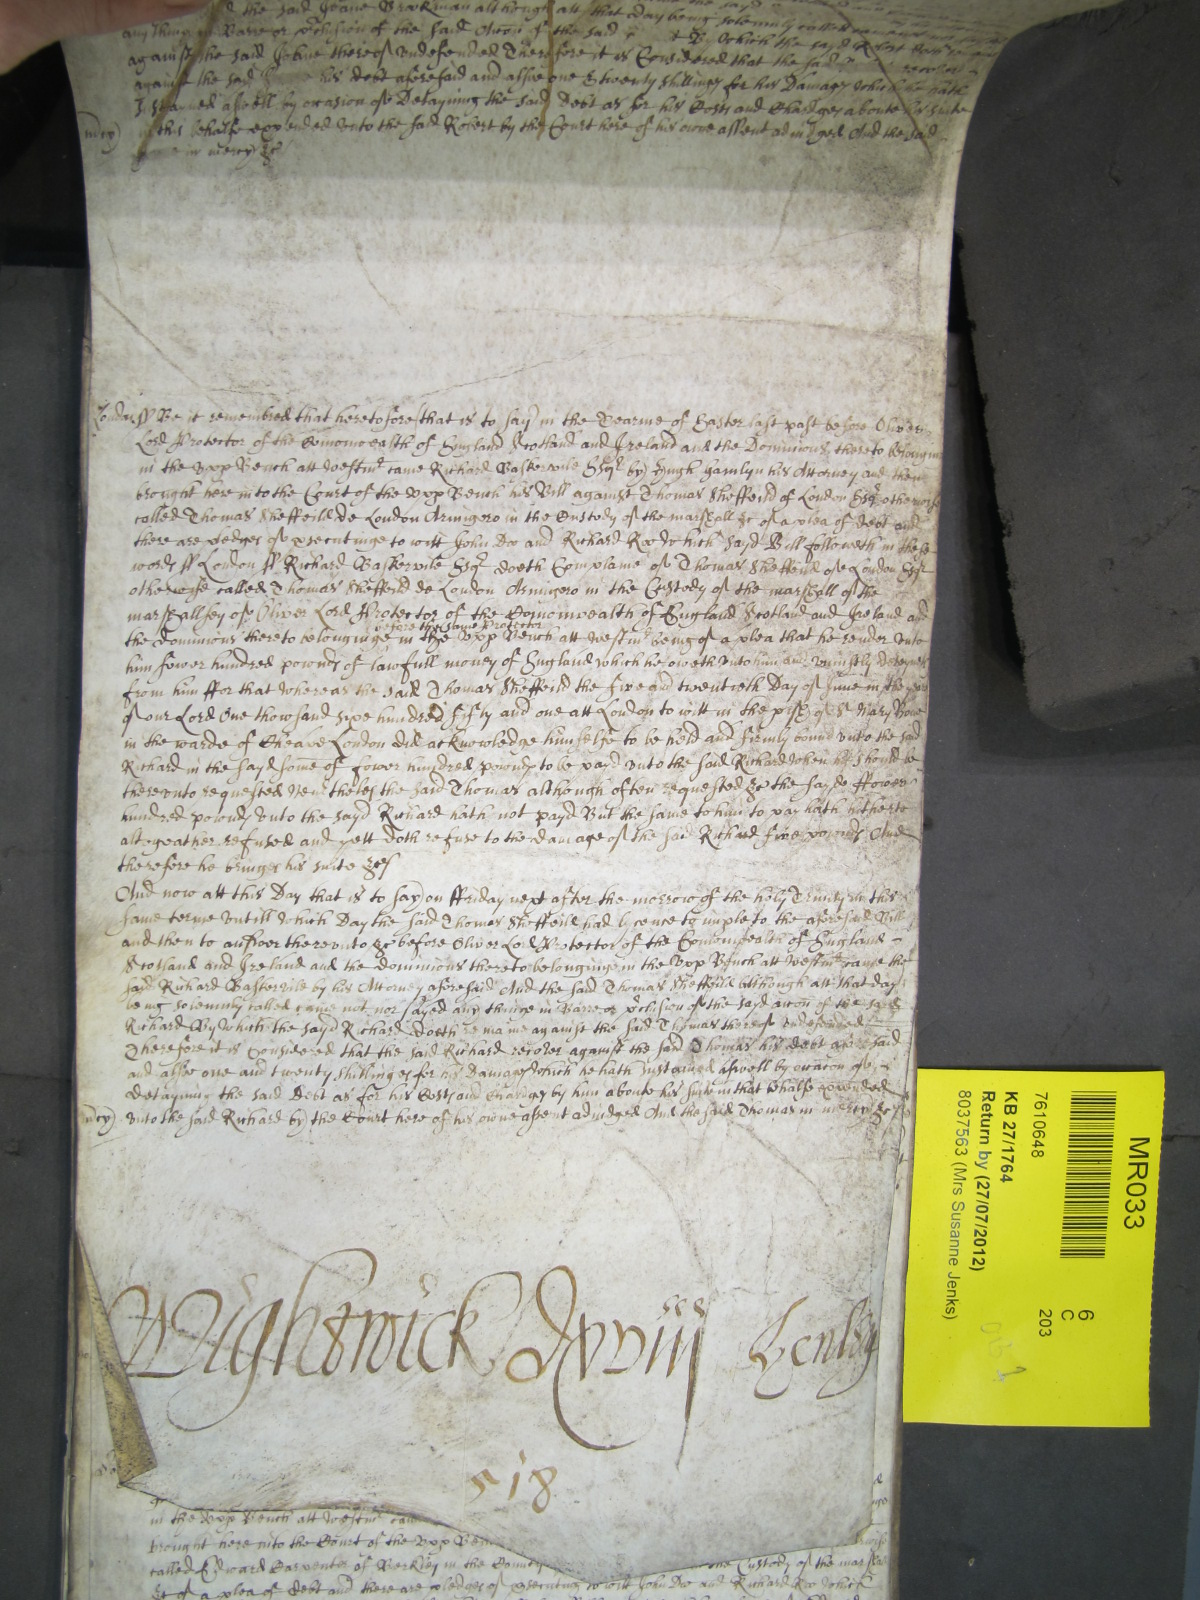 the said Joane Brookman although att that day being solemnly called
any thing in Barre or p'clusion of the said Accon of the said By Which the sayd Robert
against the said Joane thereof Undefended Therefore it is Considered that the said recover
against the said his debt aforesaid and alsoe one & twenty shillings for his Damages which he hath
Sustained aswell by occasion of Detayning the said Debt as for his Costs and Chardges aboute his suite
mcy) in this behalfe expended unto the said Robert by the Court here of his owne assent adiudged And the said
Joane in mercy &c
London ss Be it remembred that heretofore (that is to say) in the Tearme of Easter last past before Oliver
Lord Protector of the Comonwealth of England Scotland and Ireland and the Dominions thereto belonging
in the Upp Bench att Westmr came Richard Baskervile Esqr by Hugh Hamlyn his Attorney and then
brought here into the Court of the Upp Bench his Bill against Thomas Sheffeild of London Esqr otherwise
called Thomas Sheffeild de London Armigero in the Custody of the marshall &c of a plea of debt and
there are pledges of p'secutinge to witt John Doe and Richard Roe which sayd Bill followeth in these
words ss London ss Richard Baskervile Esqr doeth Complaine of Thomas Sheffeild of London Esqr
otherwise called Thomas Sheffeild de London Armigero in the Custody of the marshall of the
marshallsey of Oliver Lord Protector of the Comonwealth of England Scotland and Ireland and
before the same Protector
the dominions thereto belonginge in the Upp Bench att Westmr being of a plea that he render unto
him fower hundred pownds of lawfull money of England which he oweth unto him and uniustly deteyneth
from him ffor that whereas the said Thomas Sheffeild the five and twentieth Day of June in the yeare
of our Lord One thowsand sixe hundred fifty and one att London to witt in the p'ish of St Mary Bowe
in the warde of Cheape London did acknowledge himselfe to be held and firmly bound unto the said
Richard in the sayd some of fower hundred pownds to be payd unto the said Richard when he should be
thereunto requested Neverthelesse the said Thomas although often requested &c the sayde ffower
hundred pownds unto the sayd Richard hath not payd But the same to him to pay hath hitherto
altogeather refused and yett doth refuse to the damage of the said Richard five pownds And
therefore he bringes his suite &c
And now att this Day that is to say on ffriday next after the morrow of the holy Trinity in this
same terme untill which Day the said Thomas Sheffeild had lycence to imple to the aforesaid Bill
and then to answer thereunto &c before Oliver Lord Protector of the Comonwealth of England
Scotland and Ireland and the dominions thereto belonginge in the Upp Bench att Westmr came the
said Richard Baskervile by his Attorney aforesaid And the said Thomas Sheffeild Although att that day
being solemnly called came not nor sayed any thinge in Barre or p'clusion of the sayd accon of the sayd
Richard By which the sayd Richard doeth remaine against the said Thomas thereof undefended
Therefore it is Considered that the said Richard recover against the said Thomas his debt aforesaid
and alsoe one and twenty shillinges for his Damages which he hath sustained aswell by occacon of
detayninge the said Debt as for his Costs and Chardges by him aboute his suite in that behalfe expended
mcy) unto the said Richard by the Court here of his owne assent adiudged And the said Thomas in mercy &c
Wightwick Dxviij Henley
518
in the Upp Bench att Westmr came
brought here into the Court of the Upp Ben
called Edward Carpenter of Berkley in the County the Custody of the marshall
&c of a plea of debt and there are pledges of p'secuting to witt John Doe and Richard Roe which
MR033
6
C
203
7610648
KB 27/1764
Return by (27/07/2012)
8037563 (Mrs Susanne Jenks)